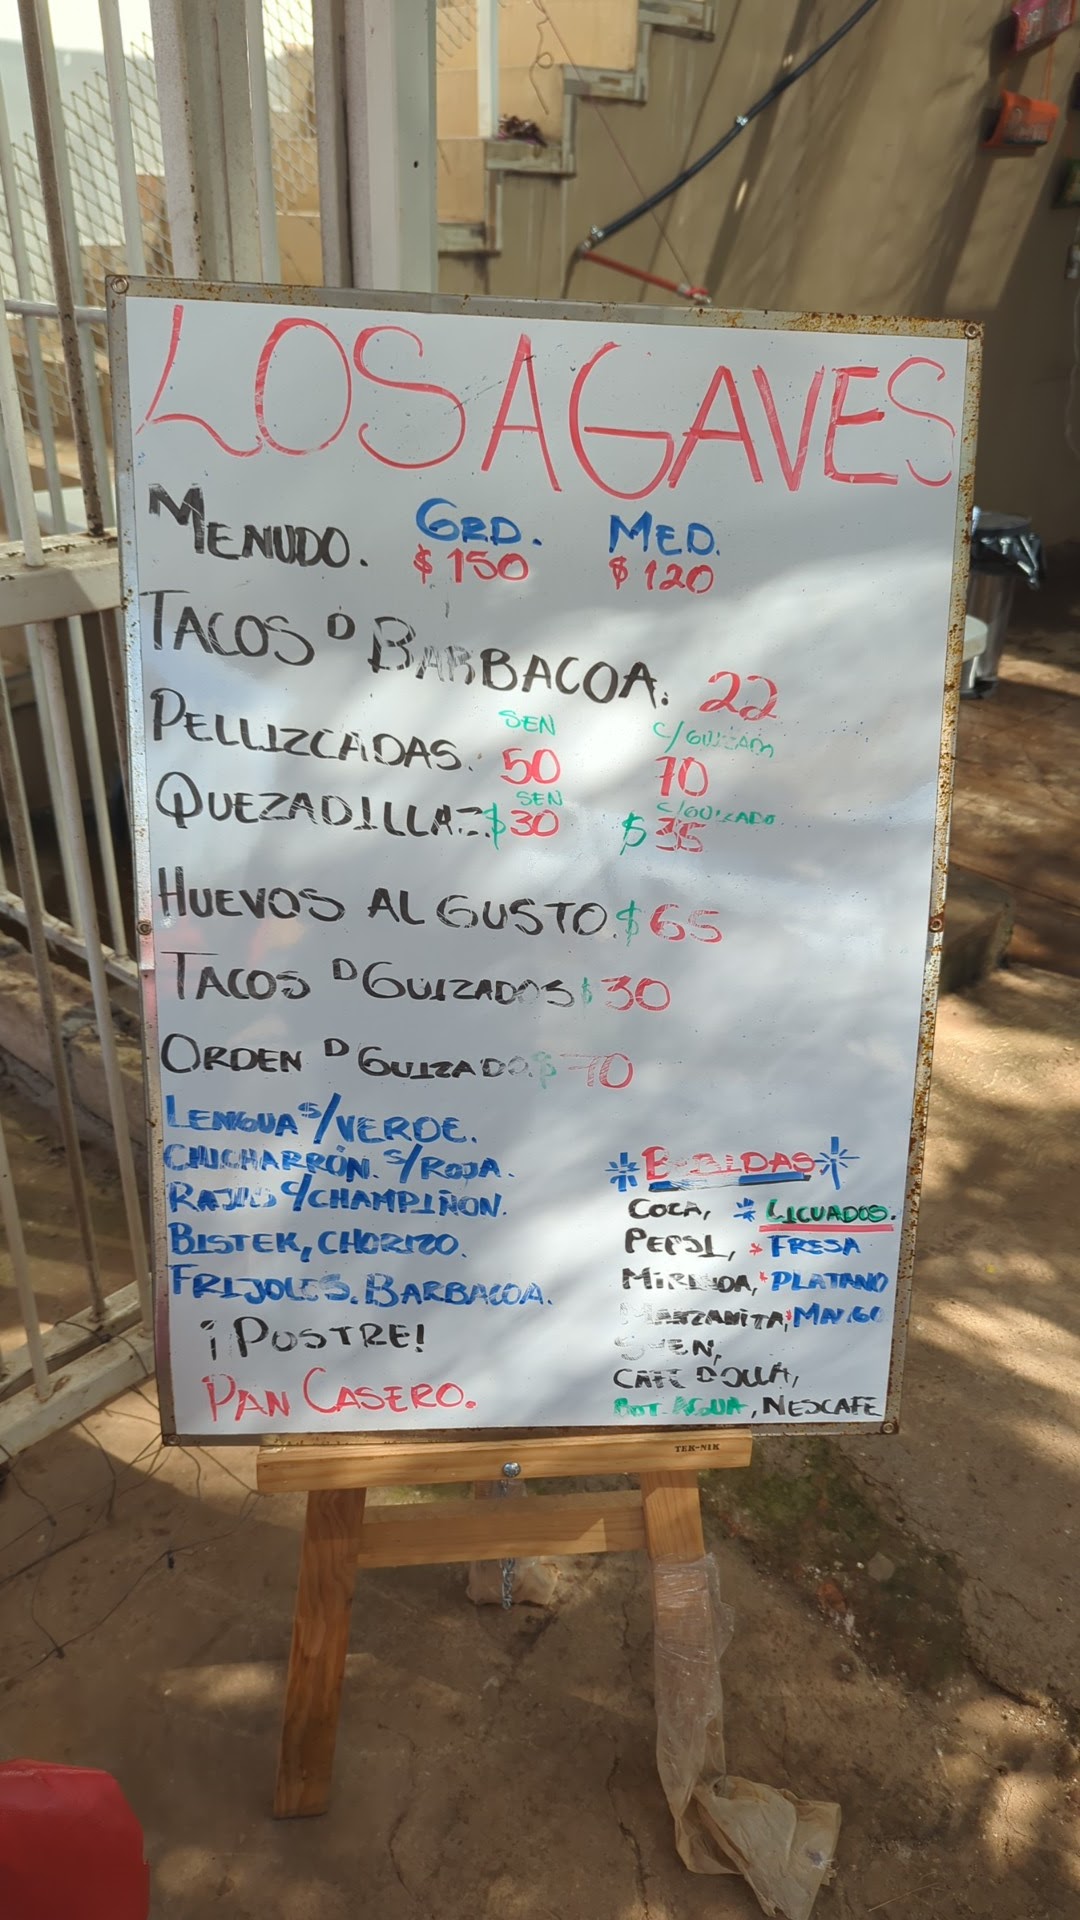 LOS AGAVES
MENUDO. GRD. MED.
$150 $120
TACOS D BARBACOA. 22
SEN C/GUIZADO
PELLIZCADAS. 50 70
SEN C/GUIZADO
QUEZADILLAZ $30 $35
HUEVOS AL GUSTO. $65
TACOS D GUIZADOS $30
ORDEN D GUIZADO. $70
LENGUA S/VERDE.
CHICHARRÓN. S/ROJA.
RAJAS C/CHAMPIÑON.
BISTEK, CHORIZO.
FRIJOLES. BARBACOA.
¡POSTRE!
PAN CASERO.
BEBIDAS
COCA, * LICUADOS.
PEPSI, * FRESA
MIRINDA, * PLATANO
MANZANITA, * MANGO
CAFE D OLLA,
BOT. AGUA, NESCAFE
TEK-NIK